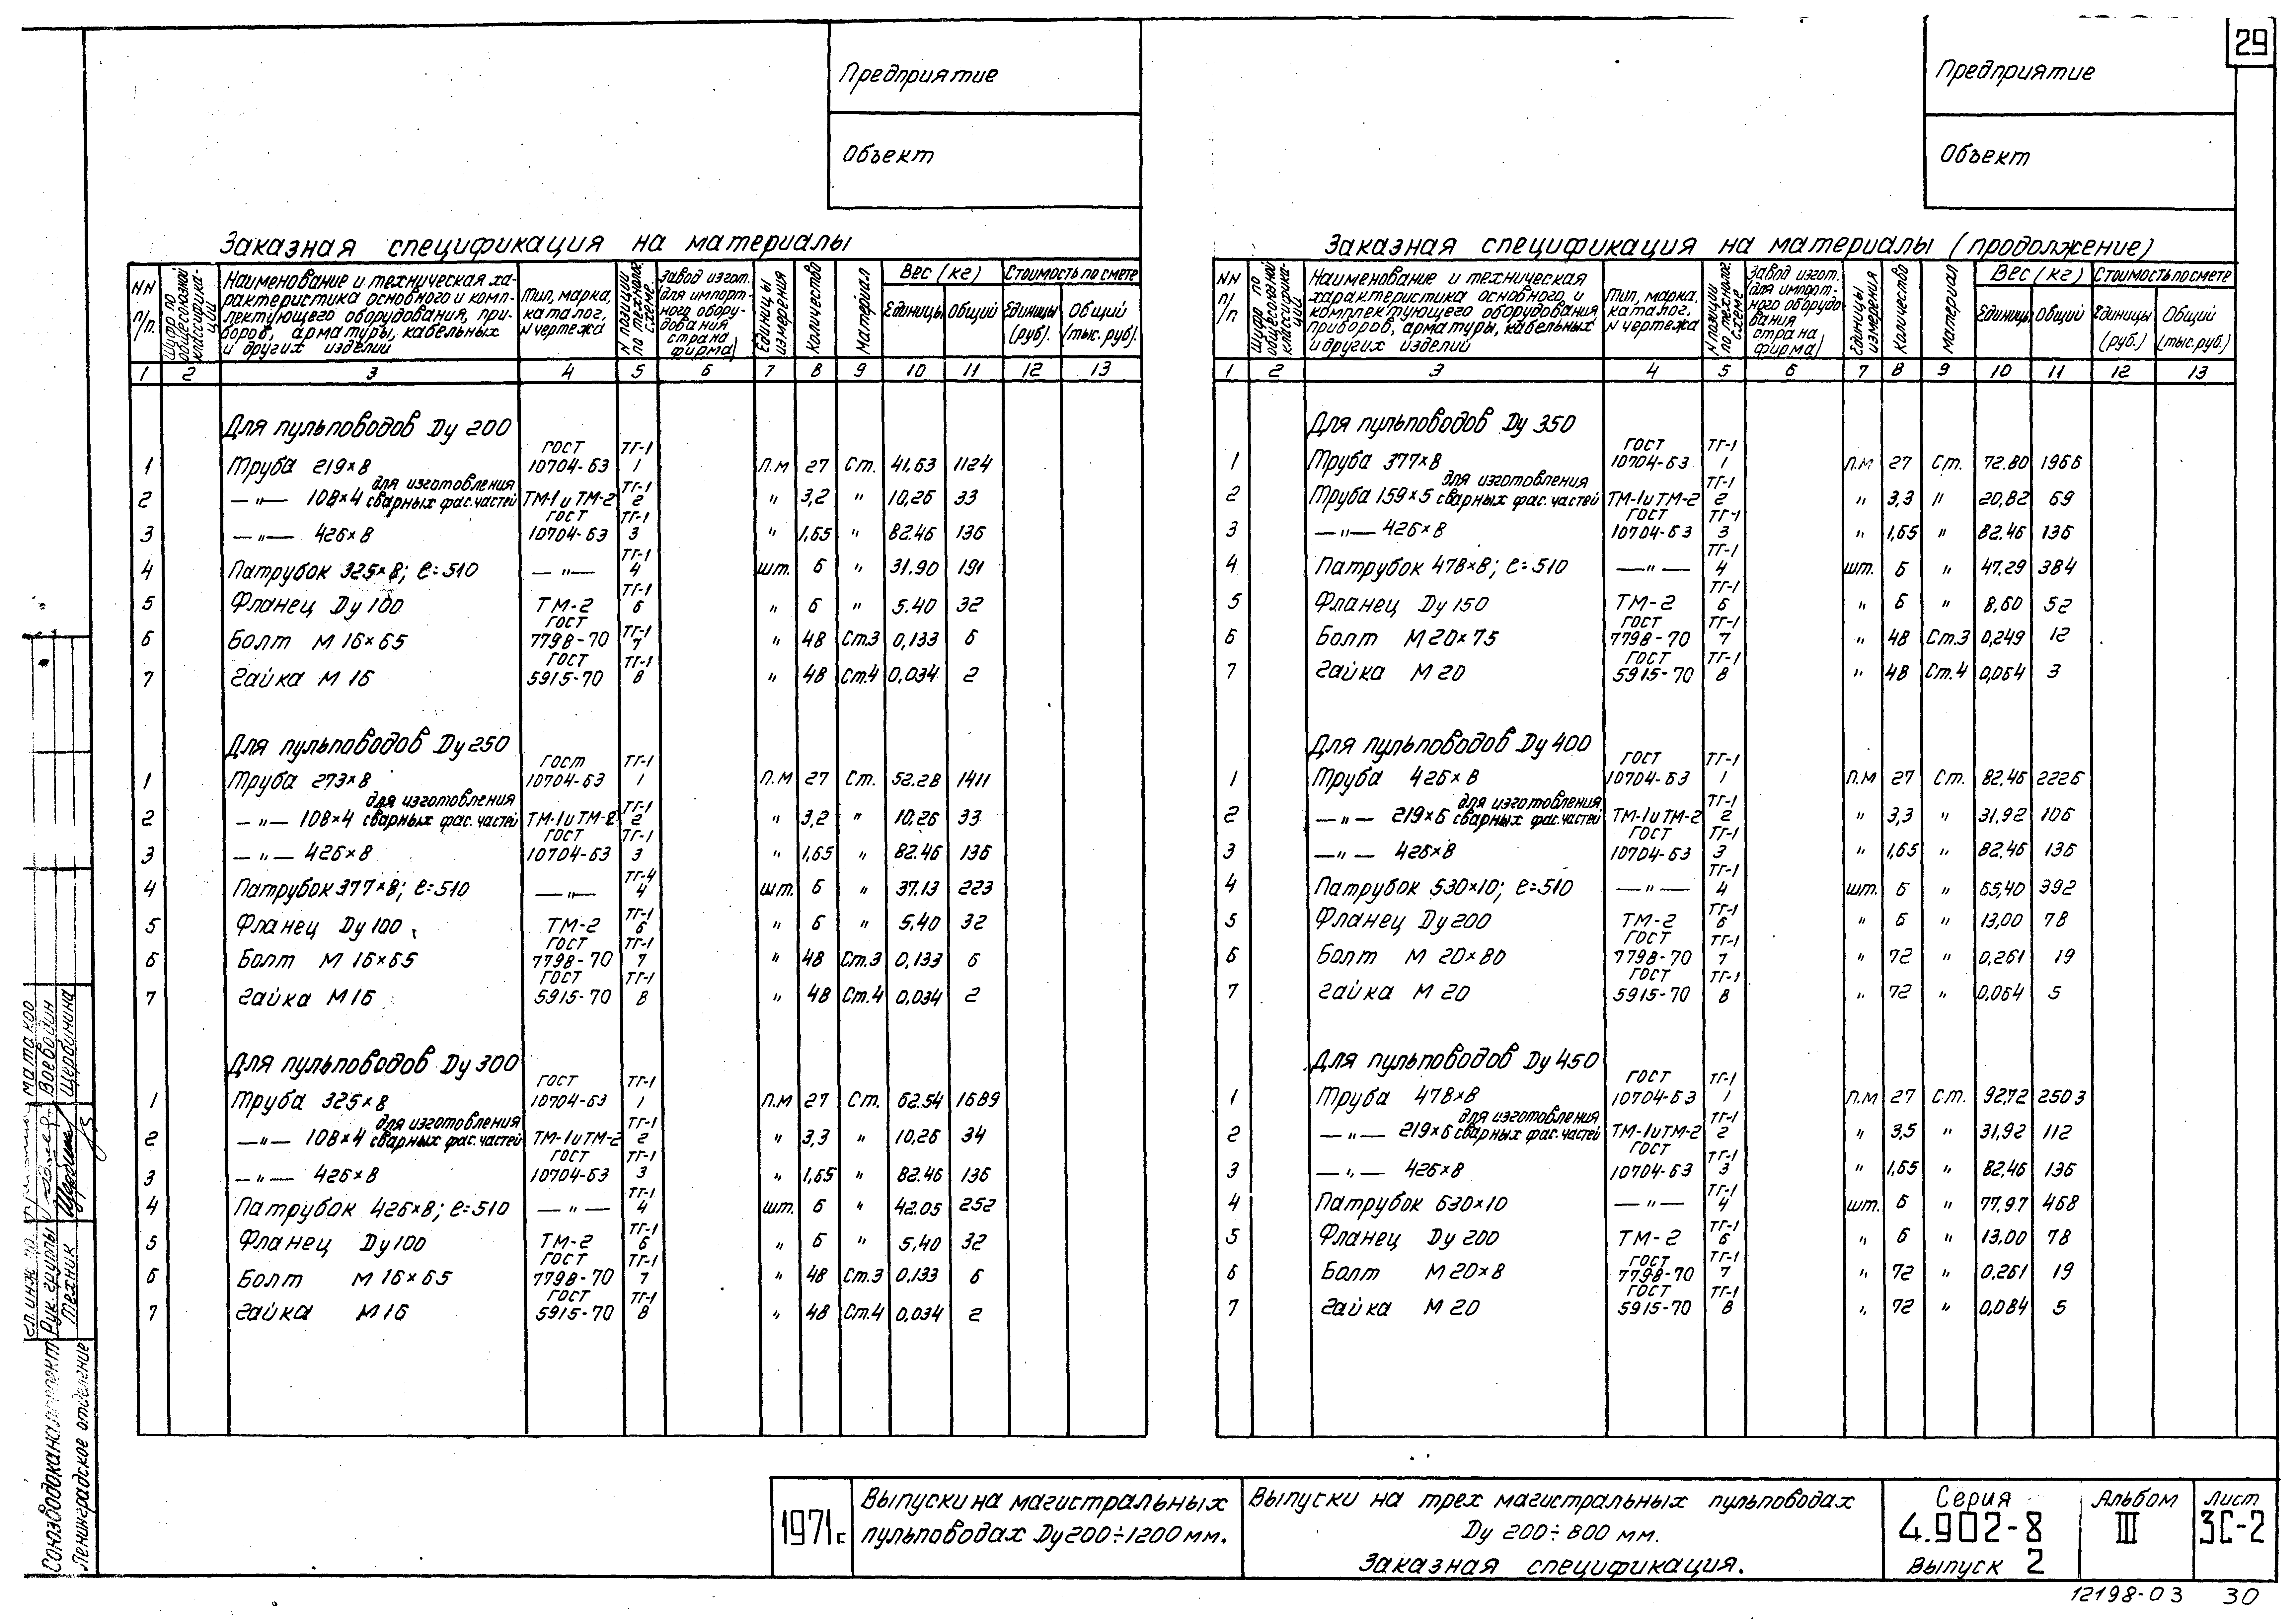 29
Предприятие
Объект
Заказная спецификация на материалы
NN п/п. | Шифр по общесоюзной классификации | Наименование и техническая характеристика основного и комплектующего оборудования, приборов, арматуры, кабельных и других изделий | Тип, марка, каталог, N чертежа | N позиции по технолог. схеме. | Завод изгот. (для импортного оборудования страна фирма) | Единицы измерения | Количество | Материал | Вес (кг) Единицы | Общий | Стоимость по смете Единицы (руб). | Общий (тыс. руб).
1 2 3 4 5 6 7 8 9 10 11 12 13
Для пульповодов Dу 200
1 Труба 219×8 ГОСТ 10704-63 ТГ-1 1 п.м 27 Ст. 41,63 1124
2 —"— 108×4 для изготовления сварных фас. частей ТМ-1 и ТМ-2 ТГ-1 2 " 3,2 " 10,26 33
3 —"— 426×8 ГОСТ 10704-63 ТГ-1 3 " 1,65 " 82.46 136
4 Патрубок 325×8; ℓ=510 —"— ТГ-1 4 шт. 6 " 31.90 191
5 Фланец Dу 100 ТМ-2 ТГ-1 6 " 6 " 5.40 32
6 Болт М 16×65 ГОСТ 7798-70 ТГ-1 7 " 48 Ст.3 0,133 6
7 Гайка М 16 ГОСТ 5915-70 ТГ-1 8 " 48 Ст.4 0,034 2
Для пульповодов Dу 250
1 Труба 273×8 ГОСТ 10704-63 ТГ-1 1 п.м 27 Ст. 52.28 1411
2 —"— 108×4 для изготовления сварных фас. частей ТМ-1 и ТМ-2 ТГ-1 2 " 3,2 " 10,26 33
3 —"— 426×8 ГОСТ 10704-63 ТГ-1 3 " 1,65 " 82.46 136
4 Патрубок 377×8; ℓ=510 —"— ТГ-4 4 шт. 6 " 37.13 223
5 Фланец Dу 100 ТМ-2 ТГ-1 6 " 6 " 5,40 32
6 Болт М 16×65 ГОСТ 7798-70 ТГ-1 7 " 48 Ст.3 0,133 6
7 Гайка М16 ГОСТ 5915-70 ТГ-1 8 " 48 Ст.4 0,034 2
Для пульповодов Dу 300
1 Труба 325×8 ГОСТ 10704-63 ТГ-1 1 п.м 27 Ст. 62.54 1689
2 —"— 108×4 для изготовления сварных фас. частей ТМ-1 и ТМ-2 ТГ-1 2 " 3,3 " 10,26 34
3 —"— 426×8 ГОСТ 10704-63 ТГ-1 3 " 1,65 " 82.46 136
4 Патрубок 426×8; ℓ=510 —"— ТГ-1 4 шт. 6 " 42.05 252
5 Фланец Dу 100 ТМ-2 ТГ-1 6 " 6 " 5,40 32
6 Болт М 16×65 ГОСТ 7798-70 ТГ-1 7 " 48 Ст.3 0,133 6
7 Гайка М16 ГОСТ 5915-70 ТГ-1 8 " 48 Ст.4 0,034 2
Предприятие
Объект
Заказная спецификация на материалы (продолжение)
NN п/п | Шифр по общесоюзной классификации | Наименование и техническая характеристика основного и комплектующего оборудования приборов, арматуры, кабельных и других изделий | Тип, марка, каталог, N чертежа | N позиции по технолог. схеме | Завод изгот. (для импортного оборудования страна фирма) | Единицы измерения | Количество | Материал | Вес (кг) Единицы | Общий | Стоимость по смете Единицы (руб.) | Общий (тыс. руб.)
1 2 3 4 5 6 7 8 9 10 11 12 13
Для пульповодов Dу 350
1 Труба 377×8 ГОСТ 10704-63 ТГ-1 1 п.м 27 Ст. 72.80 1966
2 Труба 159×5 для изготовления сварных фас. частей ТМ-1 и ТМ-2 ТГ-1 2 " 3,3 " 20,82 69
3 —"— 426×8 ГОСТ 10704-63 ТГ-1 3 " 1,65 " 82.46 136
4 Патрубок 478×8; ℓ=510 —"— ТГ-1 4 шт. 6 " 47.29 384
5 Фланец Dу 150 ТМ-2 ТГ-1 6 " 6 " 8,60 52
6 Болт М20×75 ГОСТ 7798-70 ТГ-1 7 " 48 Ст.3 0,249 12
7 Гайка М 20 ГОСТ 5915-70 ТГ-1 8 " 48 Ст.4 0,064 3
Для пульповодов Dу 400
1 Труба 426×8 ГОСТ 10704-63 ТГ-1 1 п.м 27 Ст. 82,46 2226
2 —"— 219×6 для изготовления сварных фас. частей ТМ-1 и ТМ-2 ТГ-1 2 " 3,3 " 31,92 106
3 —"— 426×8 ГОСТ 10704-63 ТГ-1 3 " 1,65 " 82.46 136
4 Патрубок 530×10; ℓ=510 —"— ТГ-1 4 шт. 6 " 65,40 392
5 Фланец Dу 200 ТМ-2 ТГ-1 6 " 6 " 13,00 78
6 Болт М 20×80 ГОСТ 7798-70 ТГ-1 7 " 72 " 0,261 19
7 Гайка М 20 ГОСТ 5915-70 ТГ-1 8 " 72 " 0,064 5
Для пульповодов Dу 450
1 Труба 478×8 ГОСТ 10704-63 ТГ-1 1 п.м 27 Ст. 92,72 2503
2 —"— 219×6 для изготовления сварных фас. частей ТМ-1 и ТМ-2 ТГ-1 2 " 3,5 " 31,92 112
3 —"— 426×8 ГОСТ 10704-63 ТГ-1 3 " 1,65 " 82,46 136
4 Патрубок 630×10 —"— ТГ-1 4 шт. 6 " 77.97 468
5 Фланец Dу 200 ТМ-2 ТГ-1 6 " 6 " 13,00 78
6 Болт М20×8 ГОСТ 7798-70 ТГ-1 7 " 72 " 0,261 19
7 Гайка М 20 ГОСТ 5915-70 ТГ-1 8 " 72 " 0,084 5
Союзводоканалпроект
Ленинградское отделение
Гл. инж. пр.
Рук. группы Воеводин
Техник Щербинина
1971 г.
Выпуски на магистральных пульповодах Dу 200÷1200 мм.
Выпуски на трех магистральных пульповодах
Dу 200÷800 мм.
Заказная спецификация.
Серия 4.902-8 Выпуск 2
Альбом III
Лист ЗС-2
12198-03 30